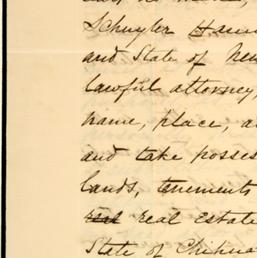 Schuyler Ham
and State of New
lawful attorney,
name, place, a
and take posses
lands, tenements
real real Estate
State of Chihua